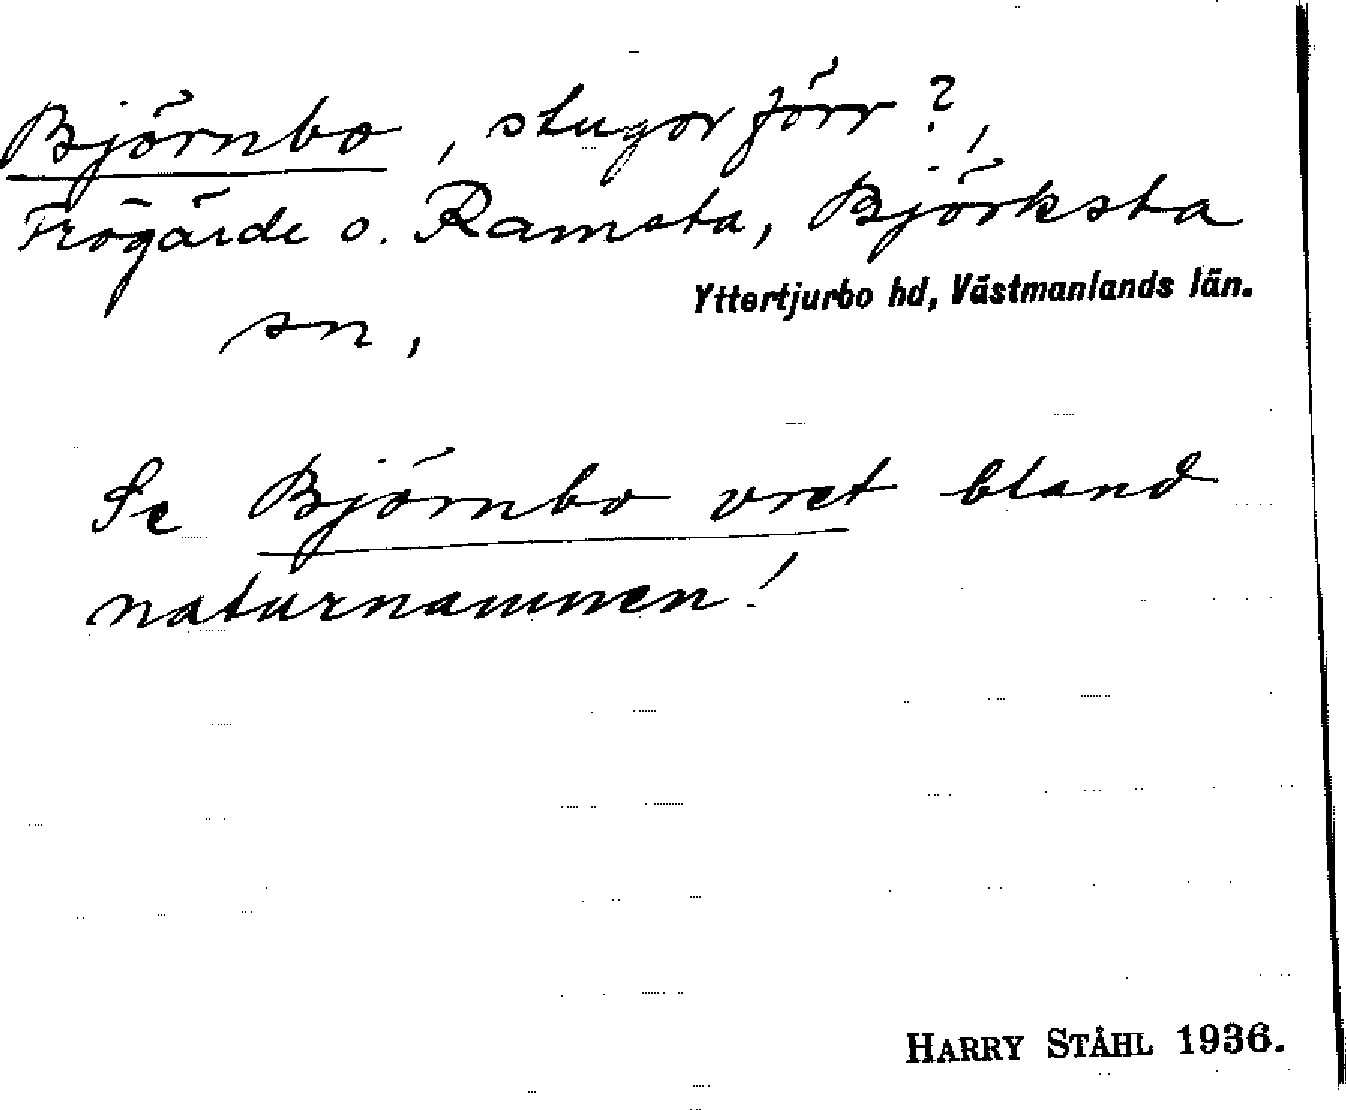 Björnbo, stugor förr?,
Frögärde o. Ramsta, Björksta
Yttertjurbo hd, Västmanlands län.
sn,
Se Björnbo vret bland
naturnamnen!
HARRY STÅHL 1936.